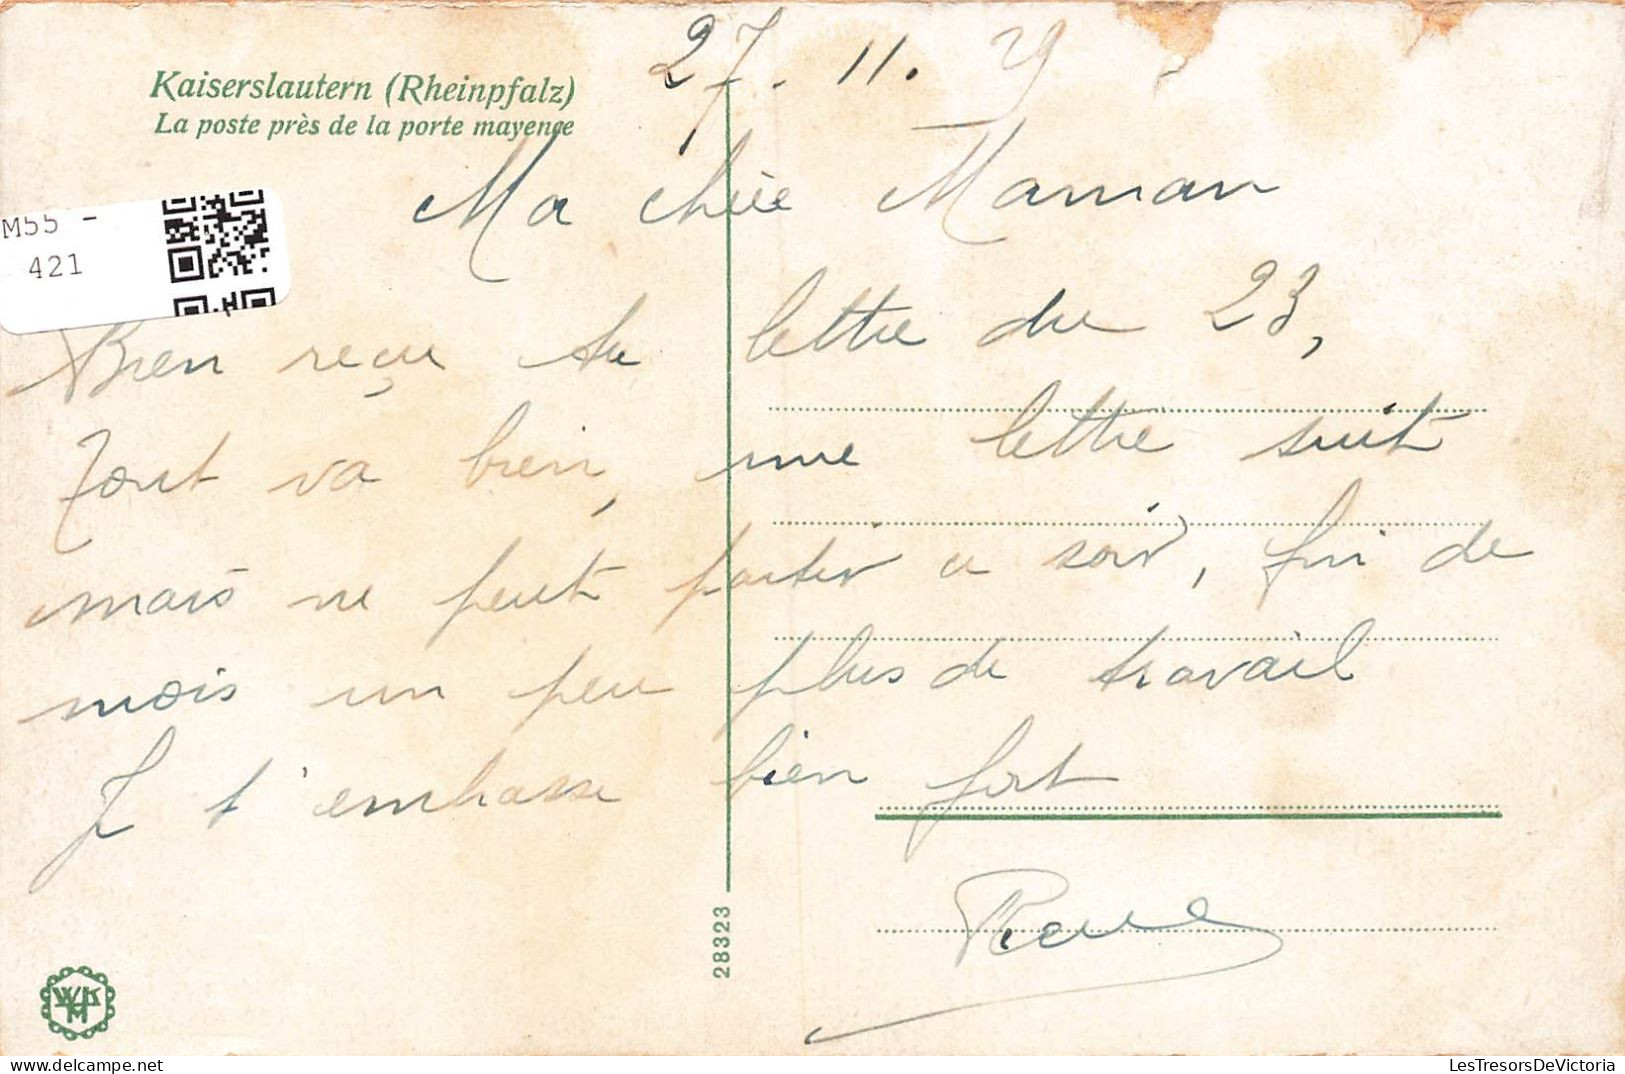 27. 11. 29
Kaiserslautern (Rheinpfalz)
La poste près de la porte mayence
Ma chère Maman
M55 -
421
Bien reçu ta lettre du 23,
Tout va bien, une lettre suit
mais ne peut partir ce soir, fin de
mois un peu plus de travail
Je t'embrasse bien fort
René
28323
WHK
LesTresorsDeVictoria